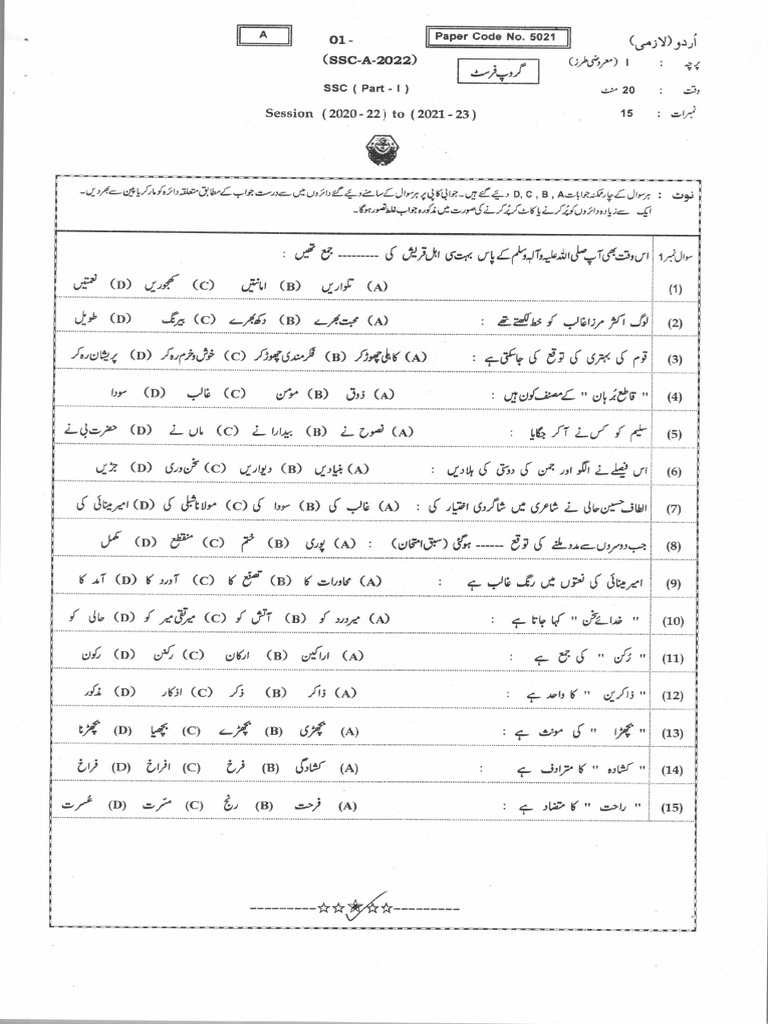 اُردو (لازمی) Paper Code No. 5021 01 - A
پرچہ : I (معروضی طرز) گروپ فرسٹ (SSC-A-2022)
وقت : 20 منٹ SSC ( Part - I )
نمبرات : 15 Session ( 2020 - 22 ) to ( 2021 - 23 )
نوٹ : ہر سوال کے چار ممکنہ جوابات A , B , C , D دیئے گئے ہیں۔ جوابی کاپی پر ہر سوال کے سامنے دیئے گئے دائروں میں سے درست جواب کے مطابق متعلقہ دائرہ کو مارکر یا پین سے بھر دیں۔
ایک سے زیادہ دائروں کو پُر کرنے یا کاٹ کر پُر کرنے کی صورت میں مذکورہ جواب غلط تصور ہوگا۔
سوال نمبر 1 اس وقت بھی آپ صلی اللہ علیہ وآلہ وسلم کے پاس بہت سی اہل قریش کی --------- جمع تھیں :
(1) (A) تلواریں (B) امانتیں (C) کھجوریں (D) نعمتیں
(2) لوگ اکثر مرزا غالب کو خط لکھتے تھے : (A) محبت بھرے (B) دکھ بھرے (C) بیرنگ (D) طویل
(3) قوم کی بہتری کی توقع کی جاسکتی ہے : (A) کاہلی چھوڑ کر (B) فکر مندی چھوڑ کر (C) خوش و خرم رہ کر (D) پریشان رہ کر
(4) " قاطع بُرہان " کے مصنف کون ہیں : (A) ذوق (B) مؤمن (C) غالب (D) سودا
(5) سلیم کو کس نے آ کر جگایا : (A) نصوح نے (B) بیدارا نے (C) ماں نے (D) حضرت بی نے
(6) اس فیصلے نے الگو اور جمن کی دوستی کی ہلادیں : (A) بنیادیں (B) دیواریں (C) سخن وری (D) جڑیں
(7) الطاف حسین حالی نے شاعری میں شاگردی اختیار کی : (A) غالب کی (B) سودا کی (C) مولانا شبلی کی (D) امیر مینائی کی
(8) جب دوسروں سے مدد ملنے کی توقع ------ ہوگئی (سبق امتحان) : (A) پوری (B) ختم (C) منقطع (D) مکمل
(9) امیر مینائی کی نعتوں میں رنگ غالب ہے : (A) محاورات کا (B) تصنّع کا (C) آورد کا (D) آمد کا
(10) " خدائے سخن " کہا جاتا ہے : (A) میر درد کو (B) آتش کو (C) میر تقی میر کو (D) حالی کو
(11) " رُکن " کی جمع ہے : (A) اراکین (B) ارکان (C) رکنن (D) رکون
(12) " ذاکرین " کا واحد ہے : (A) ذاکر (B) ذکر (C) اذکار (D) مذکور
(13) " بچھڑا " کی مونث ہے : (A) بچھڑی (B) بچھڑے (C) بچھیا (D) بچھڑنا
(14) " کشادہ " کا مترادف ہے : (A) کشادگی (B) فرخ (C) افراخ (D) فراخ
(15) " راحت " کا متضاد ہے : (A) فرحت (B) رنج (C) مسّرت (D) عُسرت